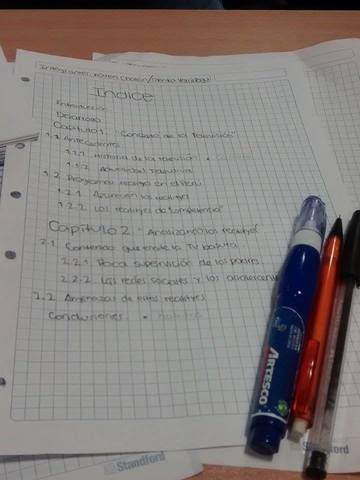 Integrantes:
Indice
Introducción
Desarrollo
Capitulo 1. "Concepto de la Televisión"
1.1 Antecedentes
1.1.1 Historia de la television
1.1.2
1.2 Programas realitys en el Perú
1.2.1 Aparicion los realitys
1.2.2 Los realitys de "competencia"
Capitulo 2: Analizando los realitys
2.1 Contenido que emite la TV basura
2.2.1. Poca supervisión de los padres
2.2.2 Las redes sociales y los adolescente
2.2 Amenazas de estos realitys
Conclusiones.
ARTESCO
Standford
Standford